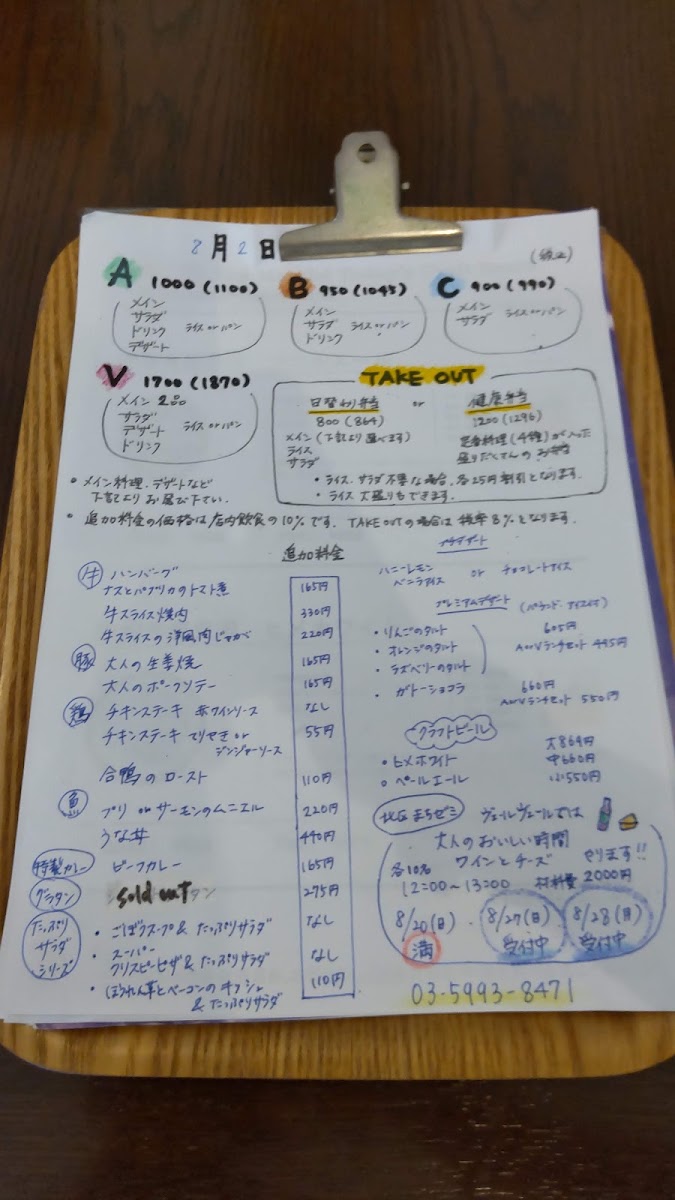 8月2日
(税込)
A 1000 (1100)
メイン
サラダ
ドリンク
デザート
ライス or パン
B 950 (1045)
メイン
サラダ
ドリンク
ライス or パン
C 900 (990)
メイン
サラダ
ライス or パン
V 1700 (1870)
メイン 2品
サラダ
デザート
ドリンク
ライス or パン
TAKE OUT
日替わり弁当 or 健康弁当
800 (864)
メイン (下記より選べます)
ライス
サラダ
1200 (1296)
定番料理 (4種) が入った
盛りだくさんのお弁当
・ライス、サラダ不要な場合、各25円割引となります.
・ライス大盛りもできます.
・メイン料理、デザートなど
下記よりお選び下さい.
・追加料金の価格は店内飲食の10%です. TAKE OUTの場合は税率8%となります.
追加料金
牛 ハンバーグ
ナスとパプリカのトマト煮 165円
牛スライス焼肉 330円
牛スライスの洋風肉じゃが 220円
豚 大人の生姜焼 165円
大人のポークソテー 165円
鶏 チキンステーキ 赤ワインソース なし
チキンステーキ てりやき or
ジンジャーソース 55円
合鴨のロースト 110円
魚 ブリ or サーモンのムニエル 220円
うな丼 440円
特製カレー ビーフカレー 165円
グラタン sold out タン 275円
たっぷり
サラダ
シリーズ
・ごぼうスープ & たっぷりサラダ なし
・スーパー
クリスピーピザ & たっぷりサラダ なし
・ほうれん草とベーコンのキッシュ
& たっぷりサラダ 110円
プチデザート
ハニーレモン
バニラアイス or チョコレートアイス
プレミアムデザート (パウンド、アイス付)
・りんごのタルト
・オレンジのタルト
・ラズベリーのタルト
605円
A or V ランチセット 495円
・ガトーショコラ 660円
A or V ランチセット 550円
クラフトビール
・ヒメホワイト
・ペールエール
大 864円
中 660円
小 550円
北区まちゼミ ヴェールヴェールでは
大人のおいしい時間
ワインとチーズ やります!!
各10名
12:00~13:00 材料費 2000円
8/20(日) 満
8/27(日) 受付中
8/28(月) 受付中
03-5993-8471